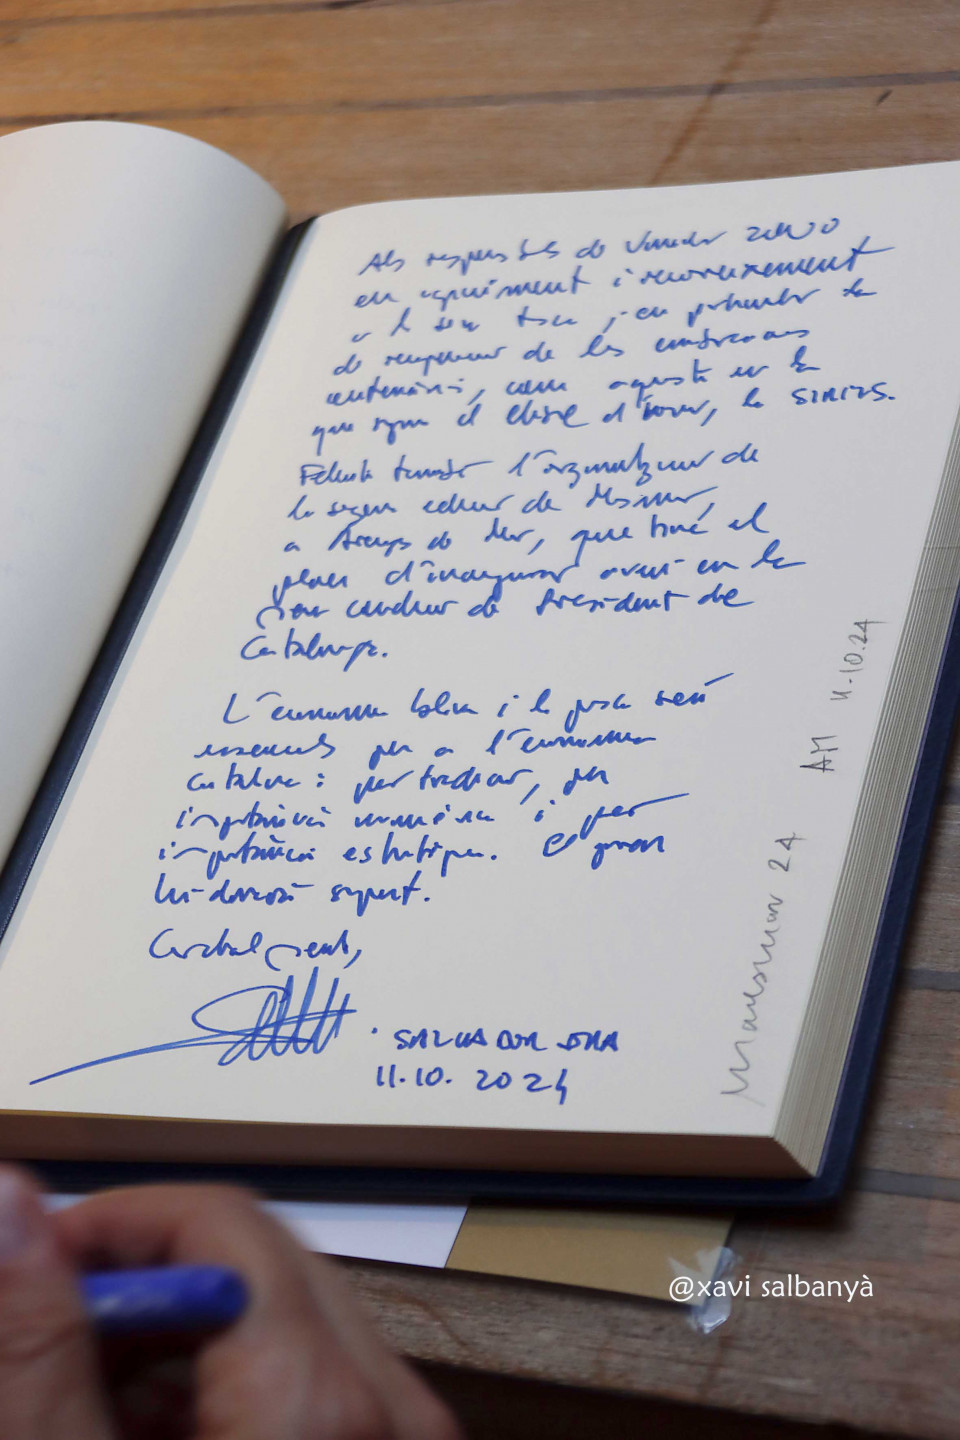 Als responsables de
en agraïment i reconeixement
a la seva tasca, en
de recuperació de les embarcacions
centenàries, com aquesta en la
que signo el llibre d'honor, la SIRIUS.
Felicito també l'organització de
la segona edició de Maresmar,
a Arenys de Mar, que tinc el
plaer d'inaugurar avui en la
meva condició de President de
Catalunya.
L'economia blava i la pesca són
essencials per a l'economia
catalana: per tradició, per
importància numèrica i per
importància estratègica. El govern
hi donarà suport.
Cordialment,
SALVADOR ILLA
11.10.2024
Maresmar 24
AM
11.10.24
@xavi salbanyà